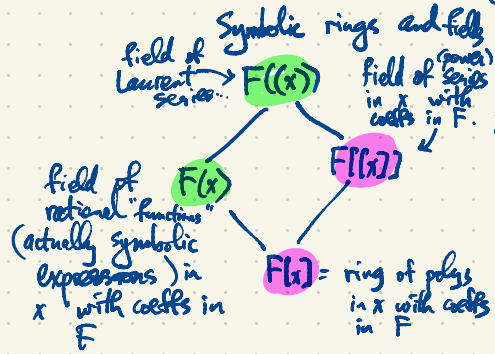 Symbolic rings and fields
field of
Laurent
series...
F((x))
field of (power) series
in x with
coeffs in F.
F[[x]]
F(x)
field of
rational "functions"
(actually symbolic
expressions) in
x with coeffs in
F
F[x] = ring of polys
in x with coeffs
in F